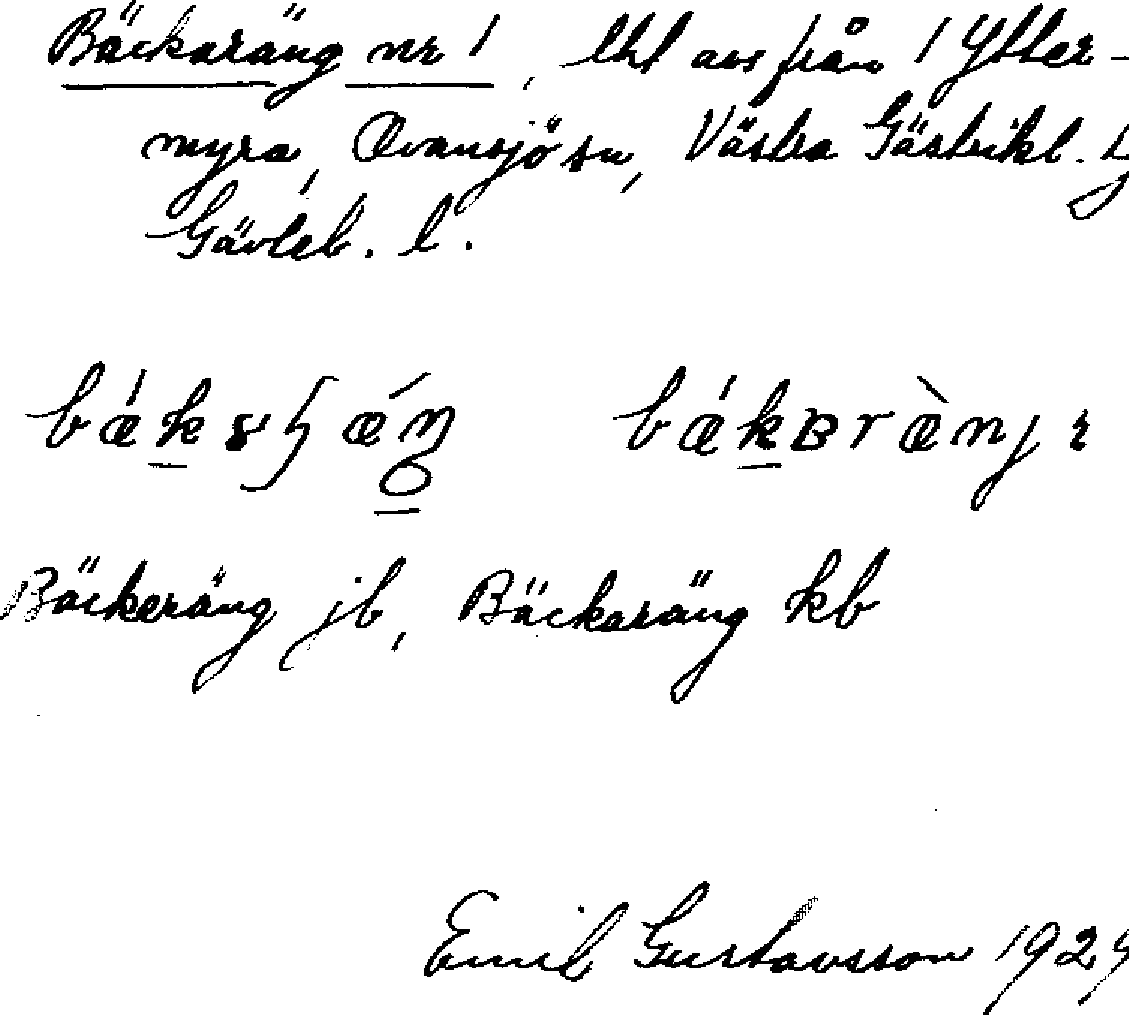 Bäckaräng nr 1, lht avs från 1 Ytter-
myra, Ovansjö sn, Västra Gästrikl.
Gävleb. l.
Bäckeräng jb, Bäckaräng kb
Emil Gustavsson